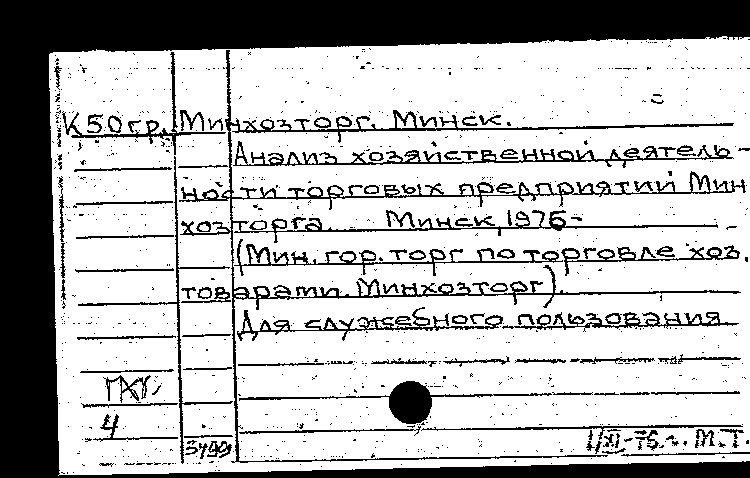 К50гр. Минхозторг. Минск.
Анализ хозяйственной деятель-
ности торговых предприятий Мин
хозторга. Минск, 1975-
(Мин. гор. торг по торговле хоз.
товарами. Минхозторг).
Для служебного пользования
4
3499
1/XI-75 г. М.Т.